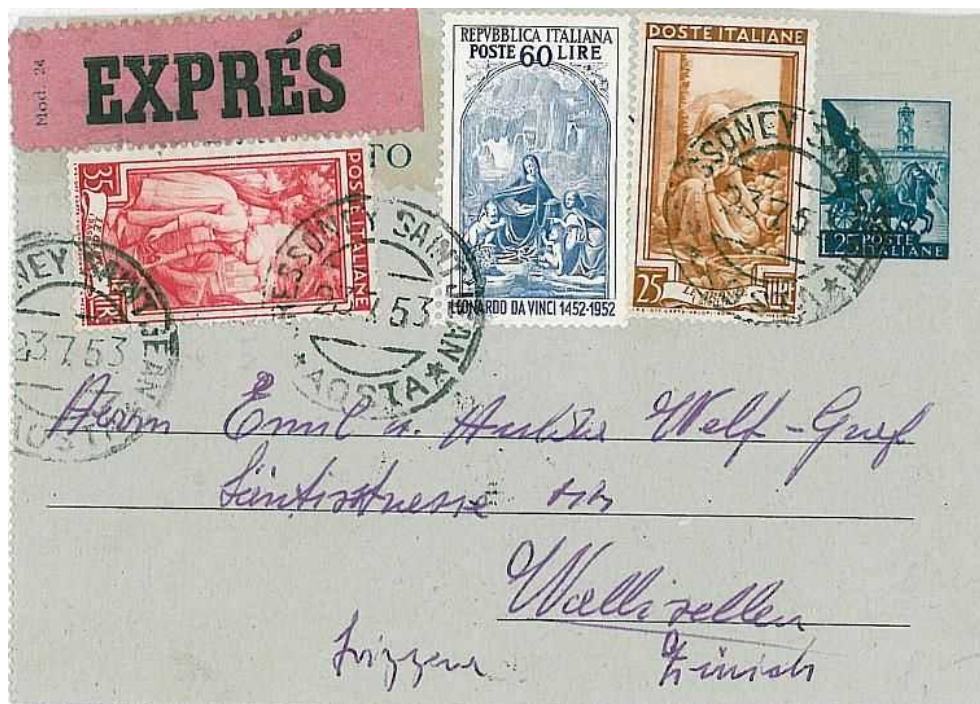 Mod. 24
EXPRÉS
TO
REPVBBLICA ITALIANA
POSTE 60 LIRE
LEONARDO DA VINCI 1452-1952
POSTE ITALIANE
25 LIRE
L. 25 POSTE
ITALIANE
35
POSTE ITALIANE
LIRE
SAINT JEAN
23.7.53
AOSTA
Herrn Emil u. Welf-Graf
Säntisstrasse
Wallisellen
Svizzera Zürich